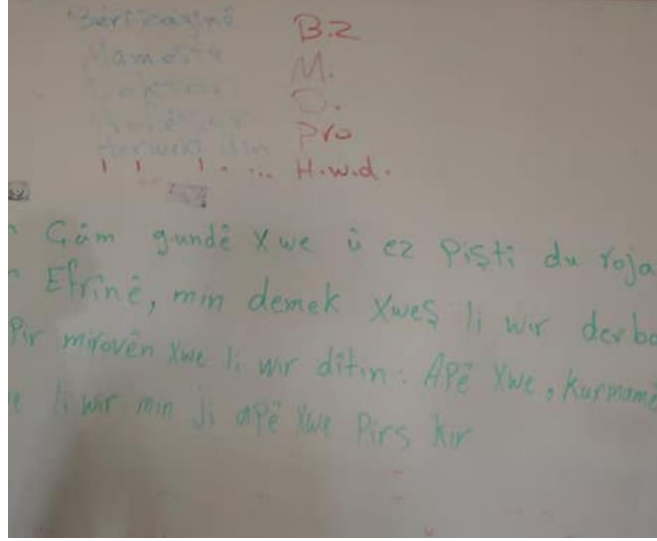 Berîzayînê B.Z
Mamoste M.
Doktor D.
Pro
Herwekî din H.w.d.
Çûm gundê xwe û ez piştî du roja
Efrînê, min demek xweş li wir derba
Pir mirovên xwe li wir dîtin: Apê xwe, kurmamê
li wir min ji apê xwe pirs kir